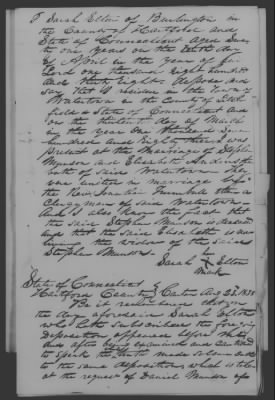 I Sarah Elton of Burlington in
the County of Hartford and
State of Connecticut aged seven
ty one years on the tenth day
of April in the year of our
Lord one thousand eight hundred
and thirty eight depose and
say that I resided in the Town of
Watertown in the County of Litch
field & State of Connecticut and
on the thirtieth day of March
in the year One thousand seven
hundred and Eighty three I was
Present at the Marriage of Stephen
Munson and Elizabeth Andrus
both of said Watertown they
were united in Marriage by
the Rev. Jonathan Trumbull then a
Clergyman of said Watertown
And I also know the fact that
the said Stephen Munson is deceased
and that the said Elizabeth is now
living the widow of the said
Stephen Munson.
Sarah X Elton
Mark
State of Connecticut
Hartford County Aug 23 1838
Be it remembered that on
the day aforesaid Sarah Elton
who subscribed the foregoing
deposition appeared before me
and after being examined and cautioned
to speak the truth made solemn oath
to the same deposition which is taken
at the request of Daniel Munson of